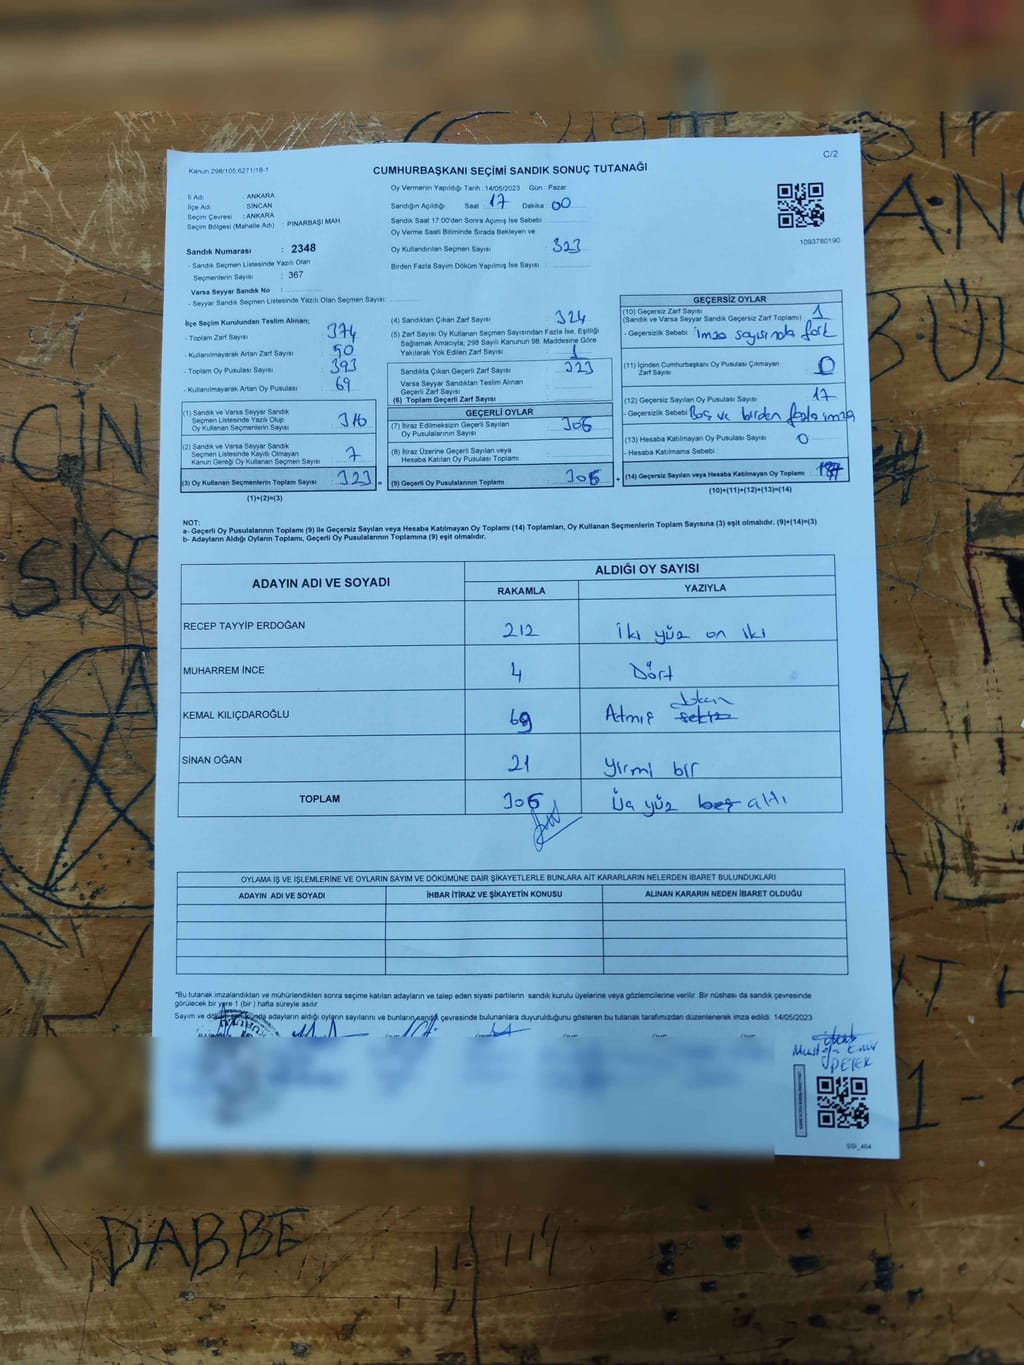 Kanun:298/105;6271/18-1
CUMHURBAŞKANI SEÇİMİ SANDIK SONUÇ TUTANAĞI
C/2
İl Adı : ANKARA
İlçe Adı : SİNCAN
Seçim Çevresi : ANKARA
Seçim Bölgesi (Mahalle Adı) : PINARBAŞI MAH.
Sandık Numarası : 2348
- Sandık Seçmen Listesinde Yazılı Olan
Seçmenlerin Sayısı : 367
Varsa Seyyar Sandık No :
- Seyyar Sandık Seçmen Listesinde Yazılı Olan Seçmen Sayısı:
Oy Vermenin Yapıldığı Tarih : 14/05/2023 Gün : Pazar
Sandığın Açıldığı Saat 17 Dakika 00
Sandık Saat 17:00'den Sonra Açımış İse Sebebi :
Oy Verme Saati Bitiminde Sırada Bekleyen ve
Oy Kullandırılan Seçmen Sayısı : 323
Birden Fazla Sayım Döküm Yapılmış İse Sayısı :
1093780190
İlçe Seçim Kurulundan Teslim Alınan;
- Toplam Zarf Sayısı : 374
- Kullanılmayarak Artan Zarf Sayısı : 50
- Toplam Oy Pusulası Sayısı : 393
- Kullanılmayarak Artan Oy Pusulası : 69
(1) Sandık ve Varsa Seyyar Sandık
Seçmen Listesinde Yazılı Olup
Oy Kullanan Seçmenlerin Sayısı : 316
(2) Sandık ve Varsa Seyyar Sandık
Seçmen Listesinde Kayıtlı Olmayan
Kanun Gereği Oy Kullanan Seçmen Sayısı : 7
(3) Oy Kullanan Seçmenlerin Toplam Sayısı : 323 =
(1)+(2)=(3)
(4) Sandıktan Çıkan Zarf Sayısı : 324
(5) Zarf Sayısı Oy Kullanan Seçmen Sayısından Fazla İse, Eşitliği
Sağlamak Amacıyla; 298 Sayılı Kanunun 98. Maddesine Göre
Yakılarak Yok Edilen Zarf Sayısı : 1
Sandıkta Çıkan Geçerli Zarf Sayısı : 323
Varsa Seyyar Sandıktan Teslim Alınan
Geçerli Zarf Sayısı :
(6) Toplam Geçerli Zarf Sayısı :
GEÇERLİ OYLAR
(7) İtiraz Edilmeksizin Geçerli Sayılan
Oy Pusulalarının Sayısı : 306
(8) İtiraz Üzerine Geçerli Sayılan veya
Hesaba Katılan Oy Pusulası Toplamı :
(9) Geçerli Oy Pusulalarının Toplamı : 306 +
GEÇERSİZ OYLAR
(10) Geçersiz Zarf Sayısı
(Sandık ve Varsa Seyyar Sandık Geçersiz Zarf Toplamı) : 1
- Geçersizlik Sebebi : imza sayısında fark
(11) İçinden Cumhurbaşkanı Oy Pusulası Çıkmayan
Zarf Sayısı : 0
(12) Geçersiz Sayılan Oy Pusulası Sayısı : 17
- Geçersizlik Sebebi : Boş ve birden fazla imza
(13) Hesaba Katılmayan Oy Pusulası Sayısı : 0
- Hesaba Katılmama Sebebi :
(14) Geçersiz Sayılan veya Hesaba Katılmayan Oy Toplamı :
(10)+(11)+(12)+(13)=(14)
NOT:
a- Geçerli Oy Pusulalarının Toplamı (9) ile Geçersiz Sayılan veya Hesaba Katılmayan Oy Toplamı (14) Toplamları, Oy Kullanan Seçmenlerin Toplam Sayısına (3) eşit olmalıdır. (9)+(14)=(3)
b- Adayların Aldığı Oyların Toplamı, Geçerli Oy Pusulalarının Toplamına (9) eşit olmalıdır.
ADAYIN ADI VE SOYADI ALDIĞI OY SAYISI
RAKAMLA YAZIYLA
RECEP TAYYİP ERDOĞAN 212 İki yüz on iki
MUHARREM İNCE 4 Dört
KEMAL KILIÇDAROĞLU 69 Atmış sekiz dokuz
SİNAN OĞAN 21 yirmi bir
TOPLAM 306 Üç yüz beş altı
OYLAMA İŞ VE İŞLEMLERİNE VE OYLARIN SAYIM VE DÖKÜMÜNE DAİR ŞİKAYETLERLE BUNLARA AİT KARARLARIN NELERDEN İBARET BULUNDUKLARI
ADAYIN ADI VE SOYADI İHBAR İTİRAZ VE ŞİKAYETİN KONUSU ALINAN KARARIN NEDEN İBARET OLDUĞU
*Bu tutanak imzalandıktan ve mühürlendikten sonra seçime katılan adayların ve talep eden siyasi partilerin sandık kurulu üyelerine veya gözlemcilerine verilir. Bir nüshası da sandık çevresinde
görülecek bir yere 1 (bir) hafta süreyle asılır.
Sayım ve döküm sonucunda adayların aldığı oyların sayılarını ve bunların sandık çevresinde bulunanlara duyurulduğunu gösteren bu tutanak tarafımızdan düzenlenerek imza edildi. 14/05/2023
Mustafa Emir
İPETEK
SSI_464
CİN
DABBE